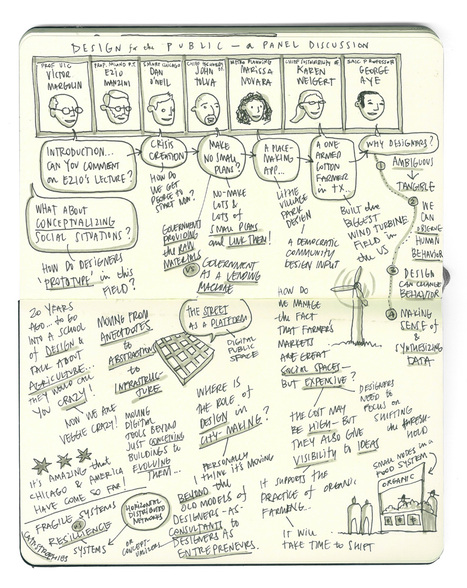 DESIGN for the PUBLIC — a PANEL DISCUSSION
PROF VIC
VICTOR
MARGOLIN
EZIO
MANZINI
SMART CHICAGO
DAN
O'NEIL
JOHN
TOLVA
METRO PLANNING
MARISSA
NOVARA
KAREN
WEIGERT
GEORGE
AYE
INTRODUCTION...
CAN YOU COMMENT
ON EZIO'S LECTURE?
CRISIS
CREATION
MAKE
NO SMALL
PLANS?
A PLACE-
MAKING
APP...
A ONE-
ARMED
COTTON
FARMER
in TX...
WHY DESIGNERS?
WHAT ABOUT
CONCEPTUALIZING
SOCIAL SITUATIONS?
HOW DO DESIGNERS
"PROTOTYPE" in this
FIELD?
HOW DO
WE GET
PEOPLE TO
START NOW?
GOVERNMENT
PROVIDING
the RAW
MATERIALS
VS
GOVERNMENT
AS A VENDING
MACHINE
NO-MAKE
LOTS &
LOTS of
SMALL PLANS
and LINK THEM!
LITTLE
VILLAGE
PARK
DESIGN
A DEMOCRATIC
COMMUNITY
DESIGN INPUT
BUILT the
BIGGEST
WIND TURBINE
FIELD in
the US
1 AMBIGUOUS
TANGIBLE
2 WE
CAN
OBSERVE
HUMAN
BEHAVIOR
3 DESIGN
CAN CHANGE
BEHAVIOR
4 MAKING
SENSE of
& SYNTHESIZING
DATA
20 YEARS
AGO... to GO
INTO A SCHOOL
of DESIGN &
TALK ABOUT
AGRICULTURE...
THEY WOULD CALL
YOU CRAZY!
NOW WE ARE
VEGGIE CRAZY!
IT'S AMAZING that
CHICAGO & AMERICA
HAVE COME SO FAR!
FRAGILE SYSTEMS
VS
RESILIENCE
SYSTEMS
CATASTROPHES
MOVING FROM
ANECDOTES
to ABSTRACTIONS
to INFRASTRUC-
TURE
MOVING
DIGITAL
TOOLS BEYOND
JUST CONCEIVING
BUILDINGS to
EVOLVING
THEM...
HORIZONTAL
DISTRIBUTED
NETWORKS
THE STREET
AS A PLATFORM
DIGITAL
PUBLIC
SPACE
WHERE IS
THE ROLE of
DESIGN in
CITY-MAKING?
PERSONALLY
I THINK IT'S MOVING
BEYOND the
OLD MODELS of
DESIGNERS-AS-
CONSULTANTS to
DESIGNERS AS
ENTREPRENEURS.
HOW DO
WE MANAGE
the FACT
THAT FARMERS
MARKETS
ARE GREAT
SOCIAL SPACES—
BUT EXPENSIVE?
THE COST MAY
BE HIGH— BUT
THEY ALSO GIVE
VISIBILITY to IDEAS
DESIGNERS
NEED to
FOCUS on
SHIFTING
the THRESH-
HOLD
IT SUPPORTS the
PRACTICE of ORGANIC
FARMING...
IT WILL
TAKE TIME to SHIFT
SMALL NODES in a
FOOD SYSTEM
ORGANIC